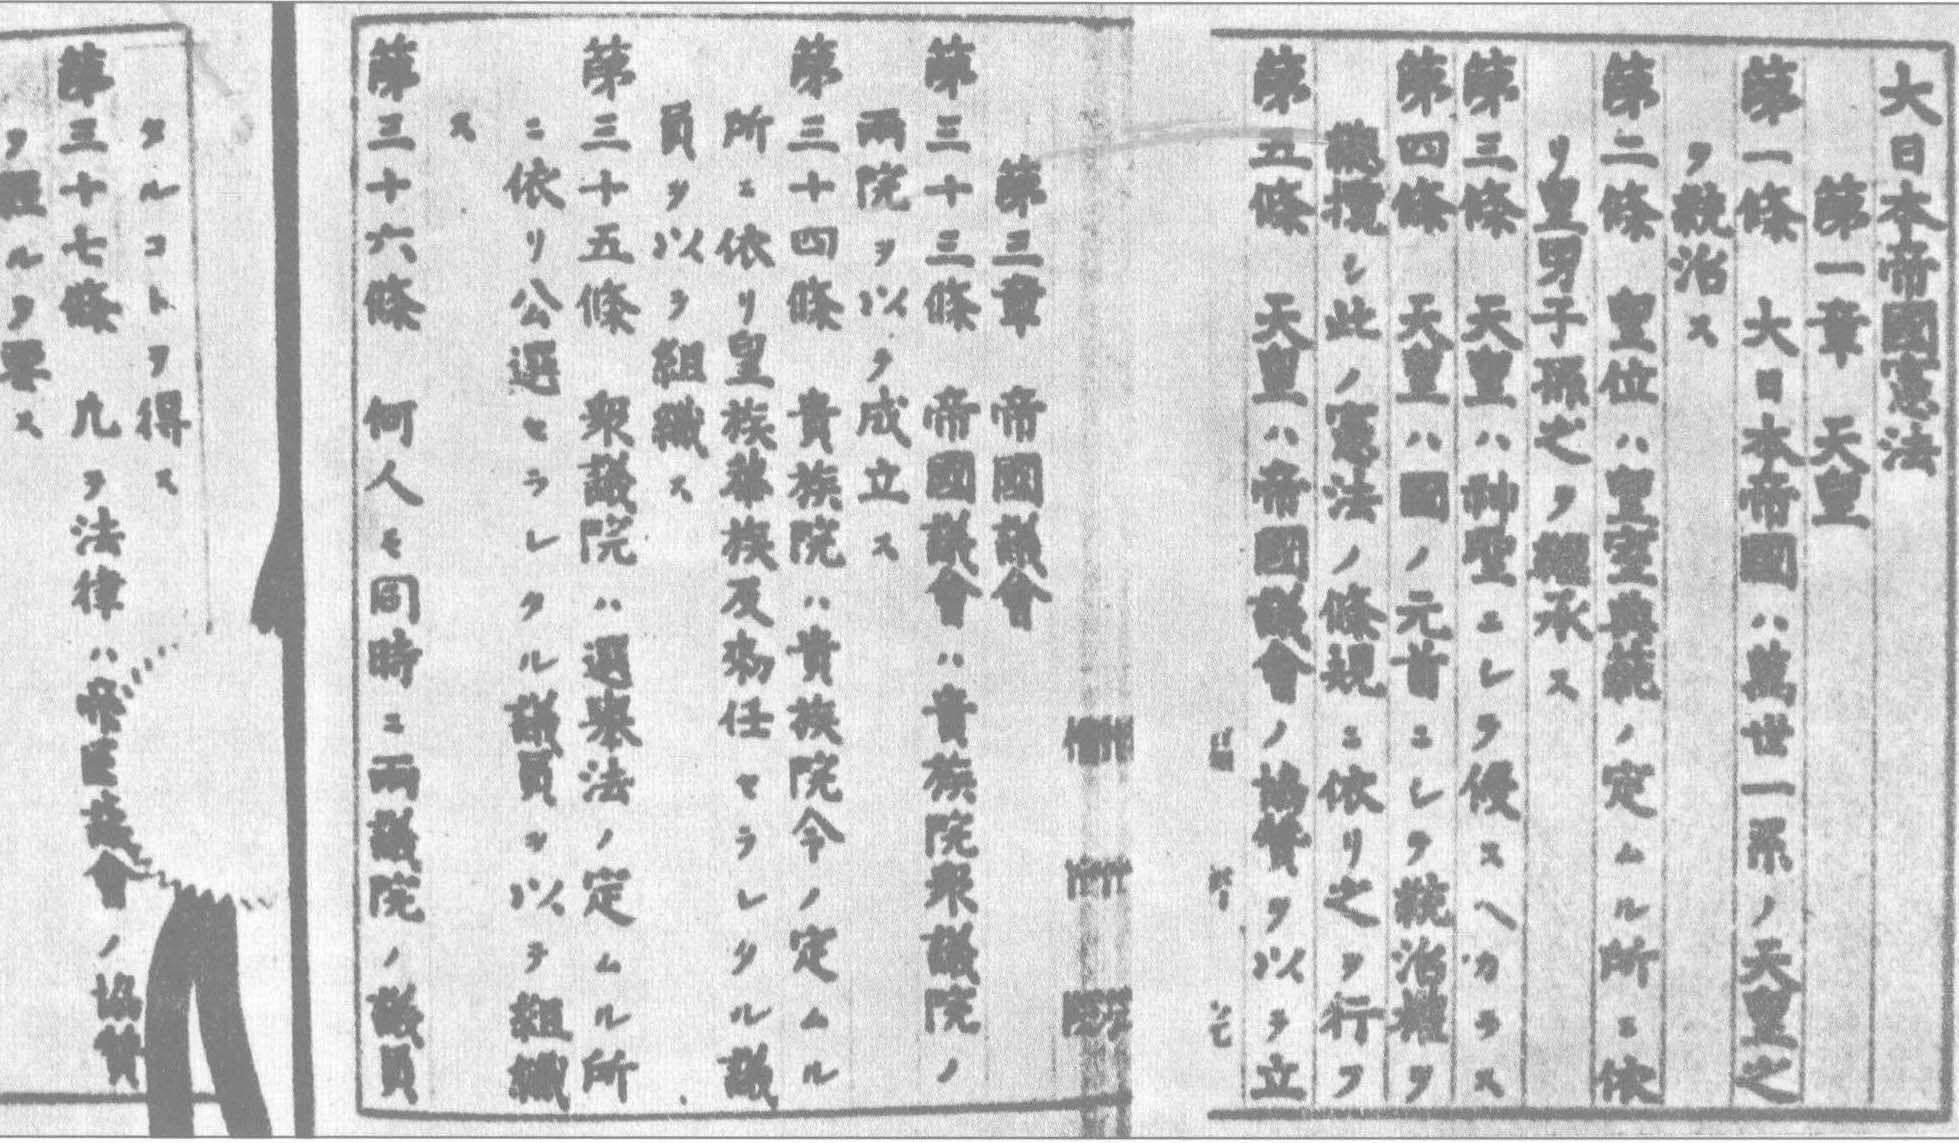 大日本帝國憲法
第一章 天皇
第一條 大日本帝國ハ萬世一系ノ天皇之
ヲ統治ス
第二條 皇位ハ皇室典範ノ定ムル所ニ依
リ皇男子孫之ヲ繼承ス
第三條 天皇ハ神聖ニシテ侵スヘカラス
第四條 天皇ハ國ノ元首ニシテ統治權ヲ
總攬シ此ノ憲法ノ條規ニ依リ之ヲ行フ
第五條 天皇ハ帝國議會ノ協贊ヲ以テ立
第三章 帝國議會
第三十三條 帝國議會ハ貴族院衆議院ノ
兩院ヲ以テ成立ス
第三十四條 貴族院ハ貴族院令ノ定ムル
所ニ依リ皇族華族及勅任セラレタル議
員ヲ以テ組織ス
第三十五條 衆議院ハ選擧法ノ定ムル所
ニ依リ公選セラレタル議員ヲ以テ組織
ス
第三十六條 何人モ同時ニ兩議院ノ議員
タルコトヲ得ス
第三十七條 凡ヲ法律ハ帝國議會ノ協贊
ヲ經ルヲ要ス